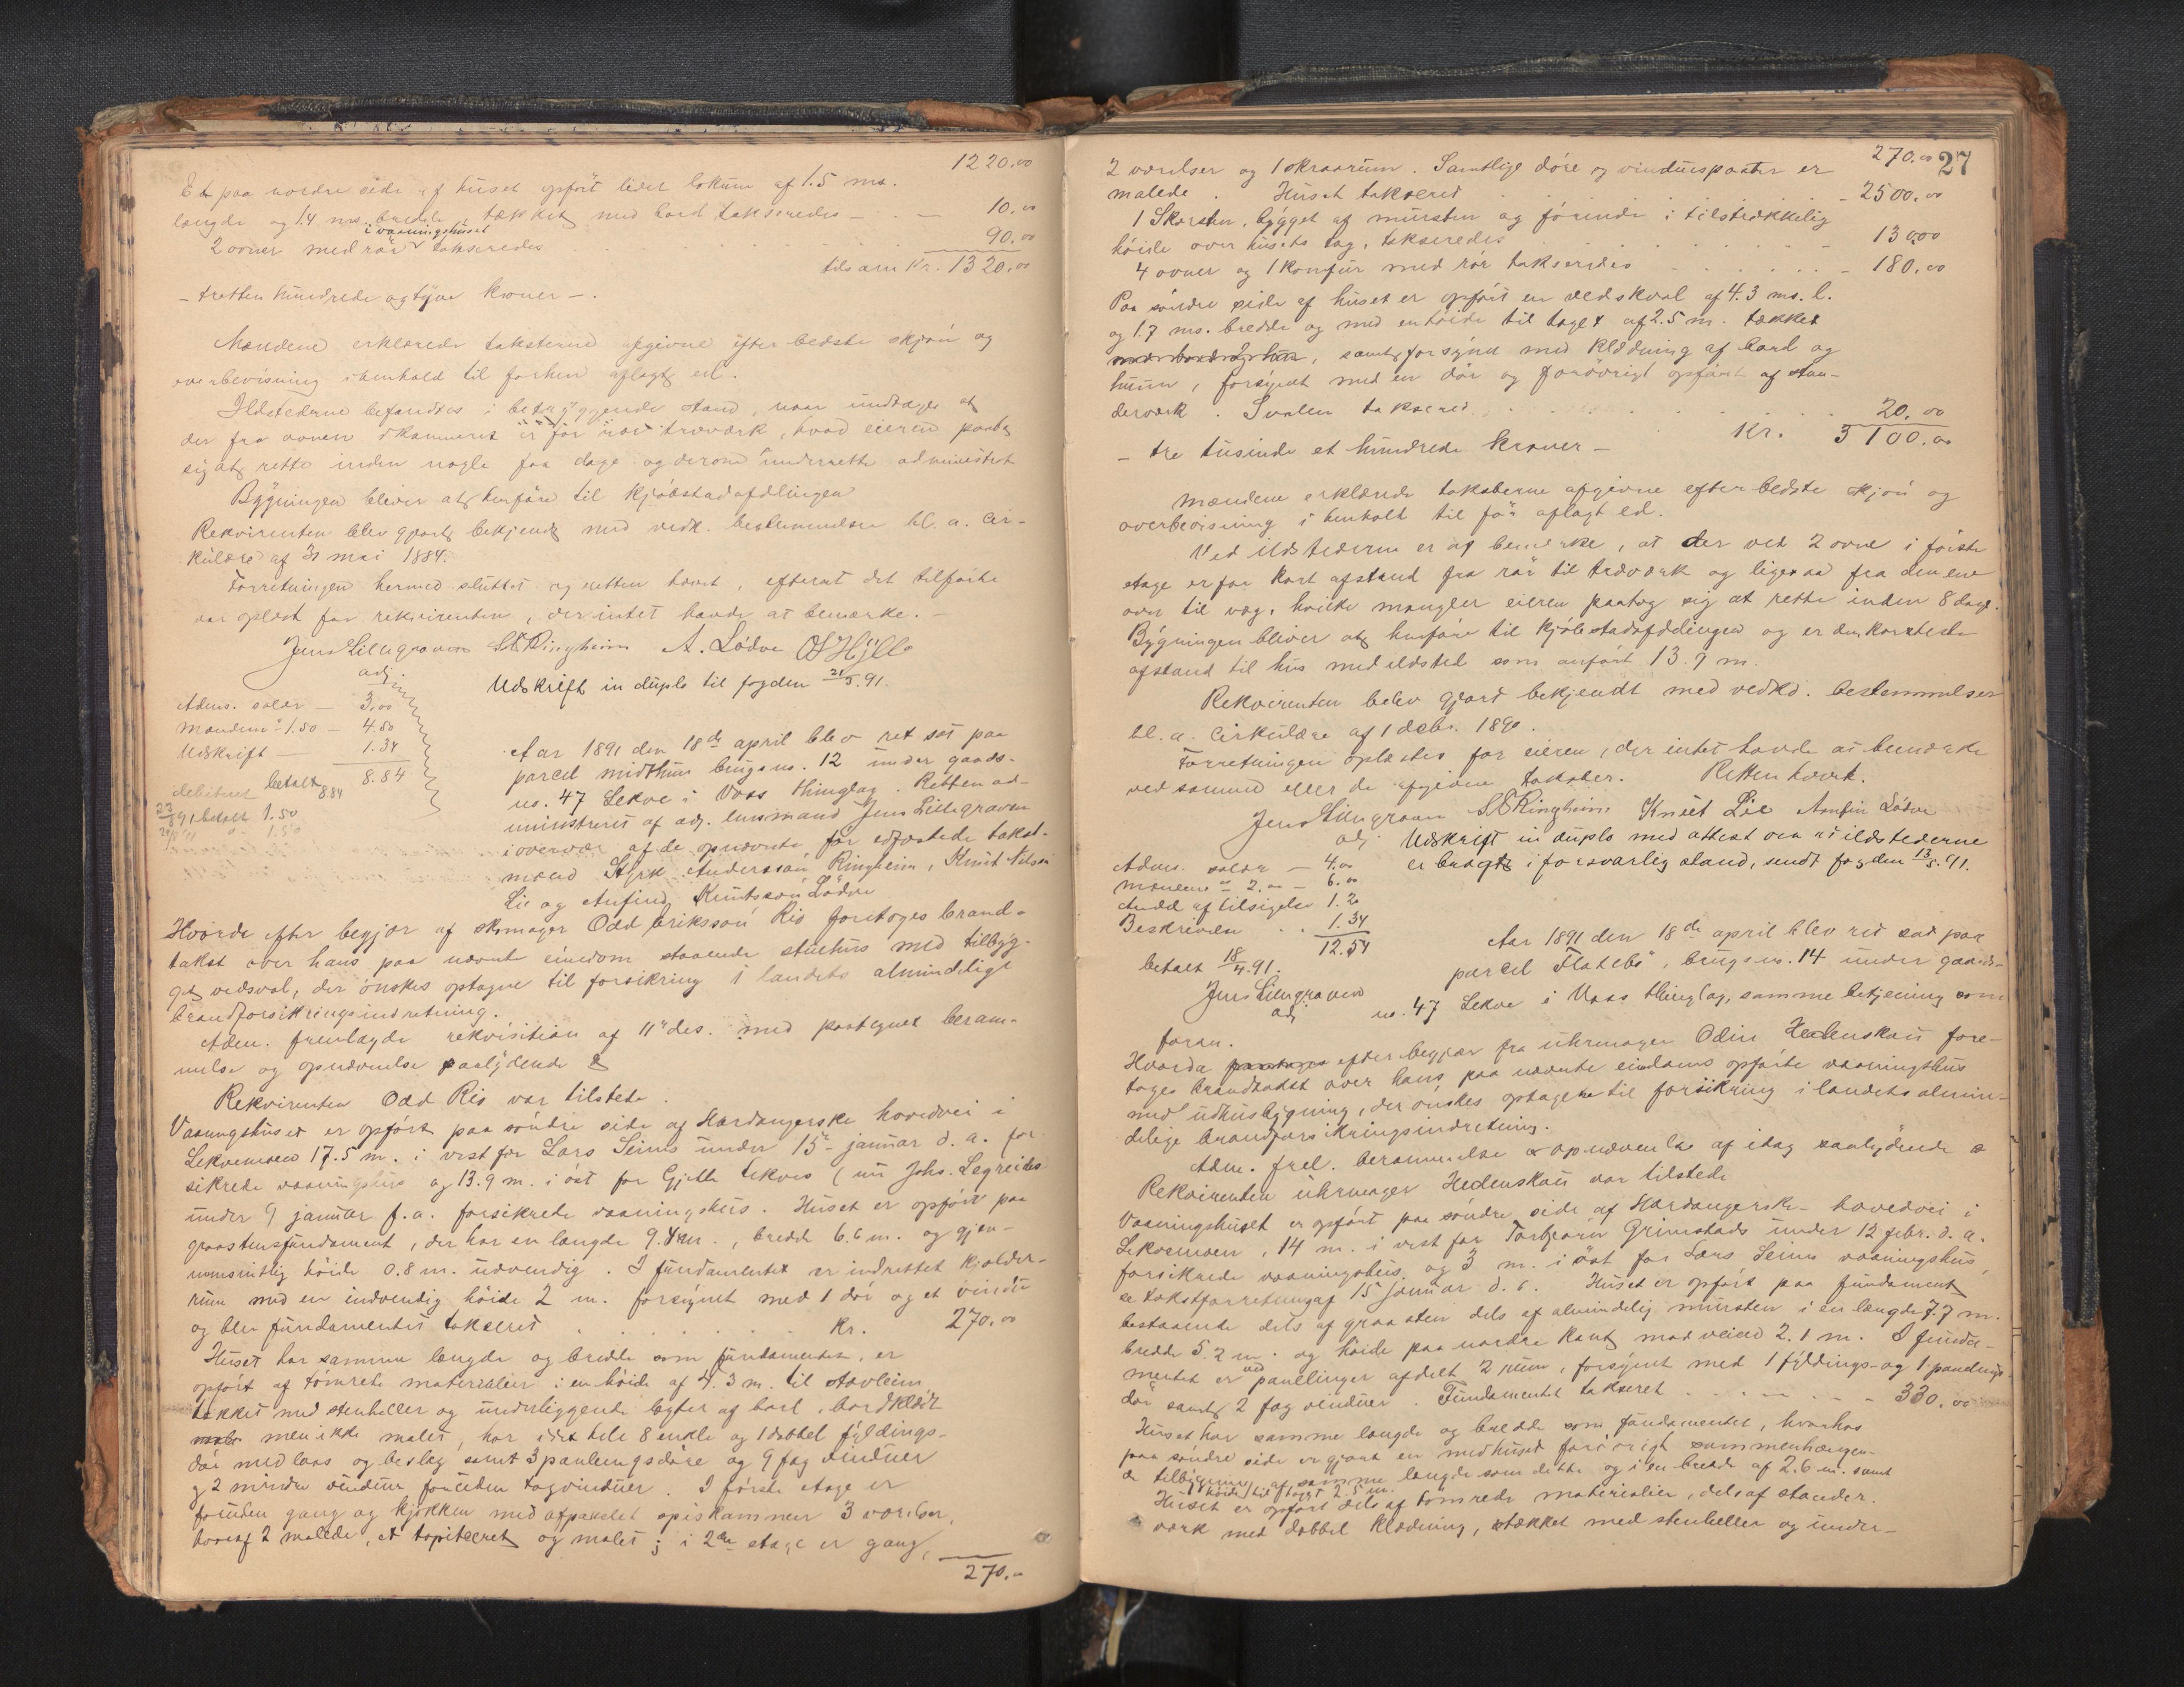 1220.00
Et paa nordre side af huset opført lidet lokum af 1.5 ms.
længde og 1.4 ms. bredde, tækket med bord takseredes — 10.00
i vaaningshuset
2 ovner med rør takseredes 90.00
tilsam Kr. 1320.00
– tretten hundrede og tyve kroner –.
Mændene erklærede taksterne afgivne efter bedste skjøn og
overbevisning i henhold til forhen aflagt ed.
Ildstederne befandtes i betryggende stand, naar undtages at
der fra ovnen i kammeret er for nær træværk, hvad eieren paatog
sig at rette inden nogle faa dage og derom underrette administrat
Bygningen bliver at henføre til kjøbstadafdlingen
Rekvirenten blev gjort bekjendt med vedk. bestemmelser bl. a. cir-
kulære af 31 mai 1884.
Forretningen hermed sluttet og retten hævet, efterat det tilførte
var oplæst for rekvirenten, der intet havde at bemærke. –
Jens Lilegraven S. A. Ringheim A. Lödve O S Hylle
adj.
Udskrift in duplo til fogden 21/5 91.
Adms. salær — 3.00
Mændene à 1.50 — 4.50
Udskrift — 1.34
betalt 8.84
debiteret 8.84
23/5 91 betalt 1.50
Aar 1891 den 18de april blev ret sat paa
parcel midthun brugsno. 12 under gaards-
no. 47 Lekve i Voss thinglag. Retten ad-
ministreret af adj. lensmand Jens Lilegraven
i overvær af de opnævnte før edfæstede takst-
mænd Styrk Anderssøn Ringheim, Knut Nilssøn
Lie og Anfind Knutssøn Lödve
Hvorda efter begjær af skomager Odd Erikssøn Ris foretoges brand-
takst over hans paa nævnte eiendom staaende stuehus med tilbyg-
get vedsval, der ønskes optagne til forsikring i landets almindelige
brandforsikringsindretning.
Adm. fremlagde rekvisition af 11te ds. med paategnet beram-
melse og opnævnelse saalydende
Rekvirenten Odd Ris var tilstede.
Vaaningshuset er opført paa søndre side af Hardangerske hovedvei i
Lekvemoen 17.5 m. i vest for Lars Seims under 15de januar d. a. for-
sikrede vaaningshus og 13.9 m. i øst for Gjetle Lekves (nu Johs. Legreids
under 9 januar f. a. forsikrede vaaningshus. Huset er opført paa
graastensfundament, der har en længde 9.4 m., bredde 6.6 m. og gjen-
nemsnitlig høide 0.8 m. udvendig. I fundamentet er indrettet kjælder-
rum med en indvendig høide 2 m. forsynet med 1 dør og et vindu
og blev fundamentet takseret kr. 270.00
Huset har samme længde og bredde som fundamentet, er
opført af tømrede materialier i en høide af 4.3 m. til stavleien
tækket med stenheller og underliggende lægter af bord, bordklædt
men ikke malet, har idet hele 8 enkle og 1 dobbel fyldings-
dør med laas og beslag samt 3 panlingsdøre og 9 fag vinduer
og 2 mindre vinduer foruden tagvinduer. I første etage er
foruden gang og kjøkken med afpanelet spiskammer 3 værelser,
hvoraf 2 malede, et tapitseret og malet; i 2den etage er gang,
270.–
27
270.00
2 værelser og 1 skraarum. Samtlige døre og vinduesposter er
malede. Huset takseret 2500.00
1 Skorsten, bygget af mursten og førende i tilstrækkelig
høide over husets tag, takseredes 130.00
4 ovner og 1 komfur med rør takseredes 180.00
Paa søndre side af huset er opført en vedskval af 4.3 ms. l.
og 1.7 ms. bredde og med en høide til taget af 2.5 m. tækket
, samt forsynet med klædning af bord og
huun, forsynet med en dør og forøvrigt opført af stan-
derværk. Svalen takseret 20.00
– tre tusinde et hundrede kroner – Kr. 3100.00
Mændene erklærede taksterne afgivne efter bedste skjøn og
overbevisning i henhold til før aflagt ed.
Ved ildstederne er at bemærke, at der ved 2 ovne i første
etage er for kort afstand fra rør til træværk og ligesaa fra den ene
ovn til væg, hvilke mangler eieren paatog sig at rette inden 8 dage.
Bygningen bliver at henføre til kjøbstadafdlingen og er den korteste
afstand til hus med ildsted som anført 13.9 m.
Rekvirenten belev gjort bekjendt med vedkd. bestemmelser
bl. a. cirkulære af 1 debr. 1890.
Forretningen oplæstes for eieren, der intet havde at bemærke
ved samme eller de afgivne takster. Retten hævet.
Jens Lilegraven S A Ringheim Knut Lie Anfin Lödve
adj
Udskrift in duplo med attest om at ildstederne
er bragt i forsvarlig stand, sendt fogden 13/5 91.
Adms. salær — 4.00
Mændene à 2.00 — 6.00
Andel af tilsigelse 1.20
Beskrivelse 1.34
12.54
betalt 18/4 91.
Jens Lilegraven
adj
Aar 1891 den 18de april blev ret sat paa
parcel Flatebø, brugsno. 14 under gaards-
no. 47 Lekve i Voss thinglag, samme betjening som
foran.
Hvorda efter begjær fra uhrmager Odin Hedenskou fore-
toges brandtakst over hans paa nævnte eiendoms opførte vaaningshus
med udhusbygning, der ønskes optagene til forsikring i landets almin-
delige brandforsikringsindretning.
Adm. frel. berammelse & opnævnelse af idag saalydende
Rekvirenten uhrmager Hedenskou var tilstede
Vaaningshuset er opført paa søndre side af Hardangerske hovedvei i
Lekvemoen, 14 m. i vest for Torbjørn Grimstads under 12 febr. d. a.
forsikrede vaaningshus og 3 m. i øst for Lars Seims vaaningshus,
se takstforretning af 15 januar d. a. Huset er opført paa fundament
bestaaende dels af graasten dels af almindelig mursten i en længde 7.7 m.
bredde 5.2 m. og høide paa nordre kant mod veien 2.1 m. I funda-
mentet er ved panelinger afdelt 2 rum, forsynet med 1 fyldings- og 1 panelings-
dør samt 2 fag vinduer. Fundamentet takseret 330.00
Huset har samme længde og bredde som fundamentet, hvorhos
paa søndre side er gjort en med huset forøvrigt sammenhængen-
de tilbygning af samme længde som dette og i en bredde af 2.6 m. samt
høide til taget 2.5 m.
Huset er opført dels af tømrede materialier, dels af stander-
værk med dobbel klædning, tækket med stenheller og under-